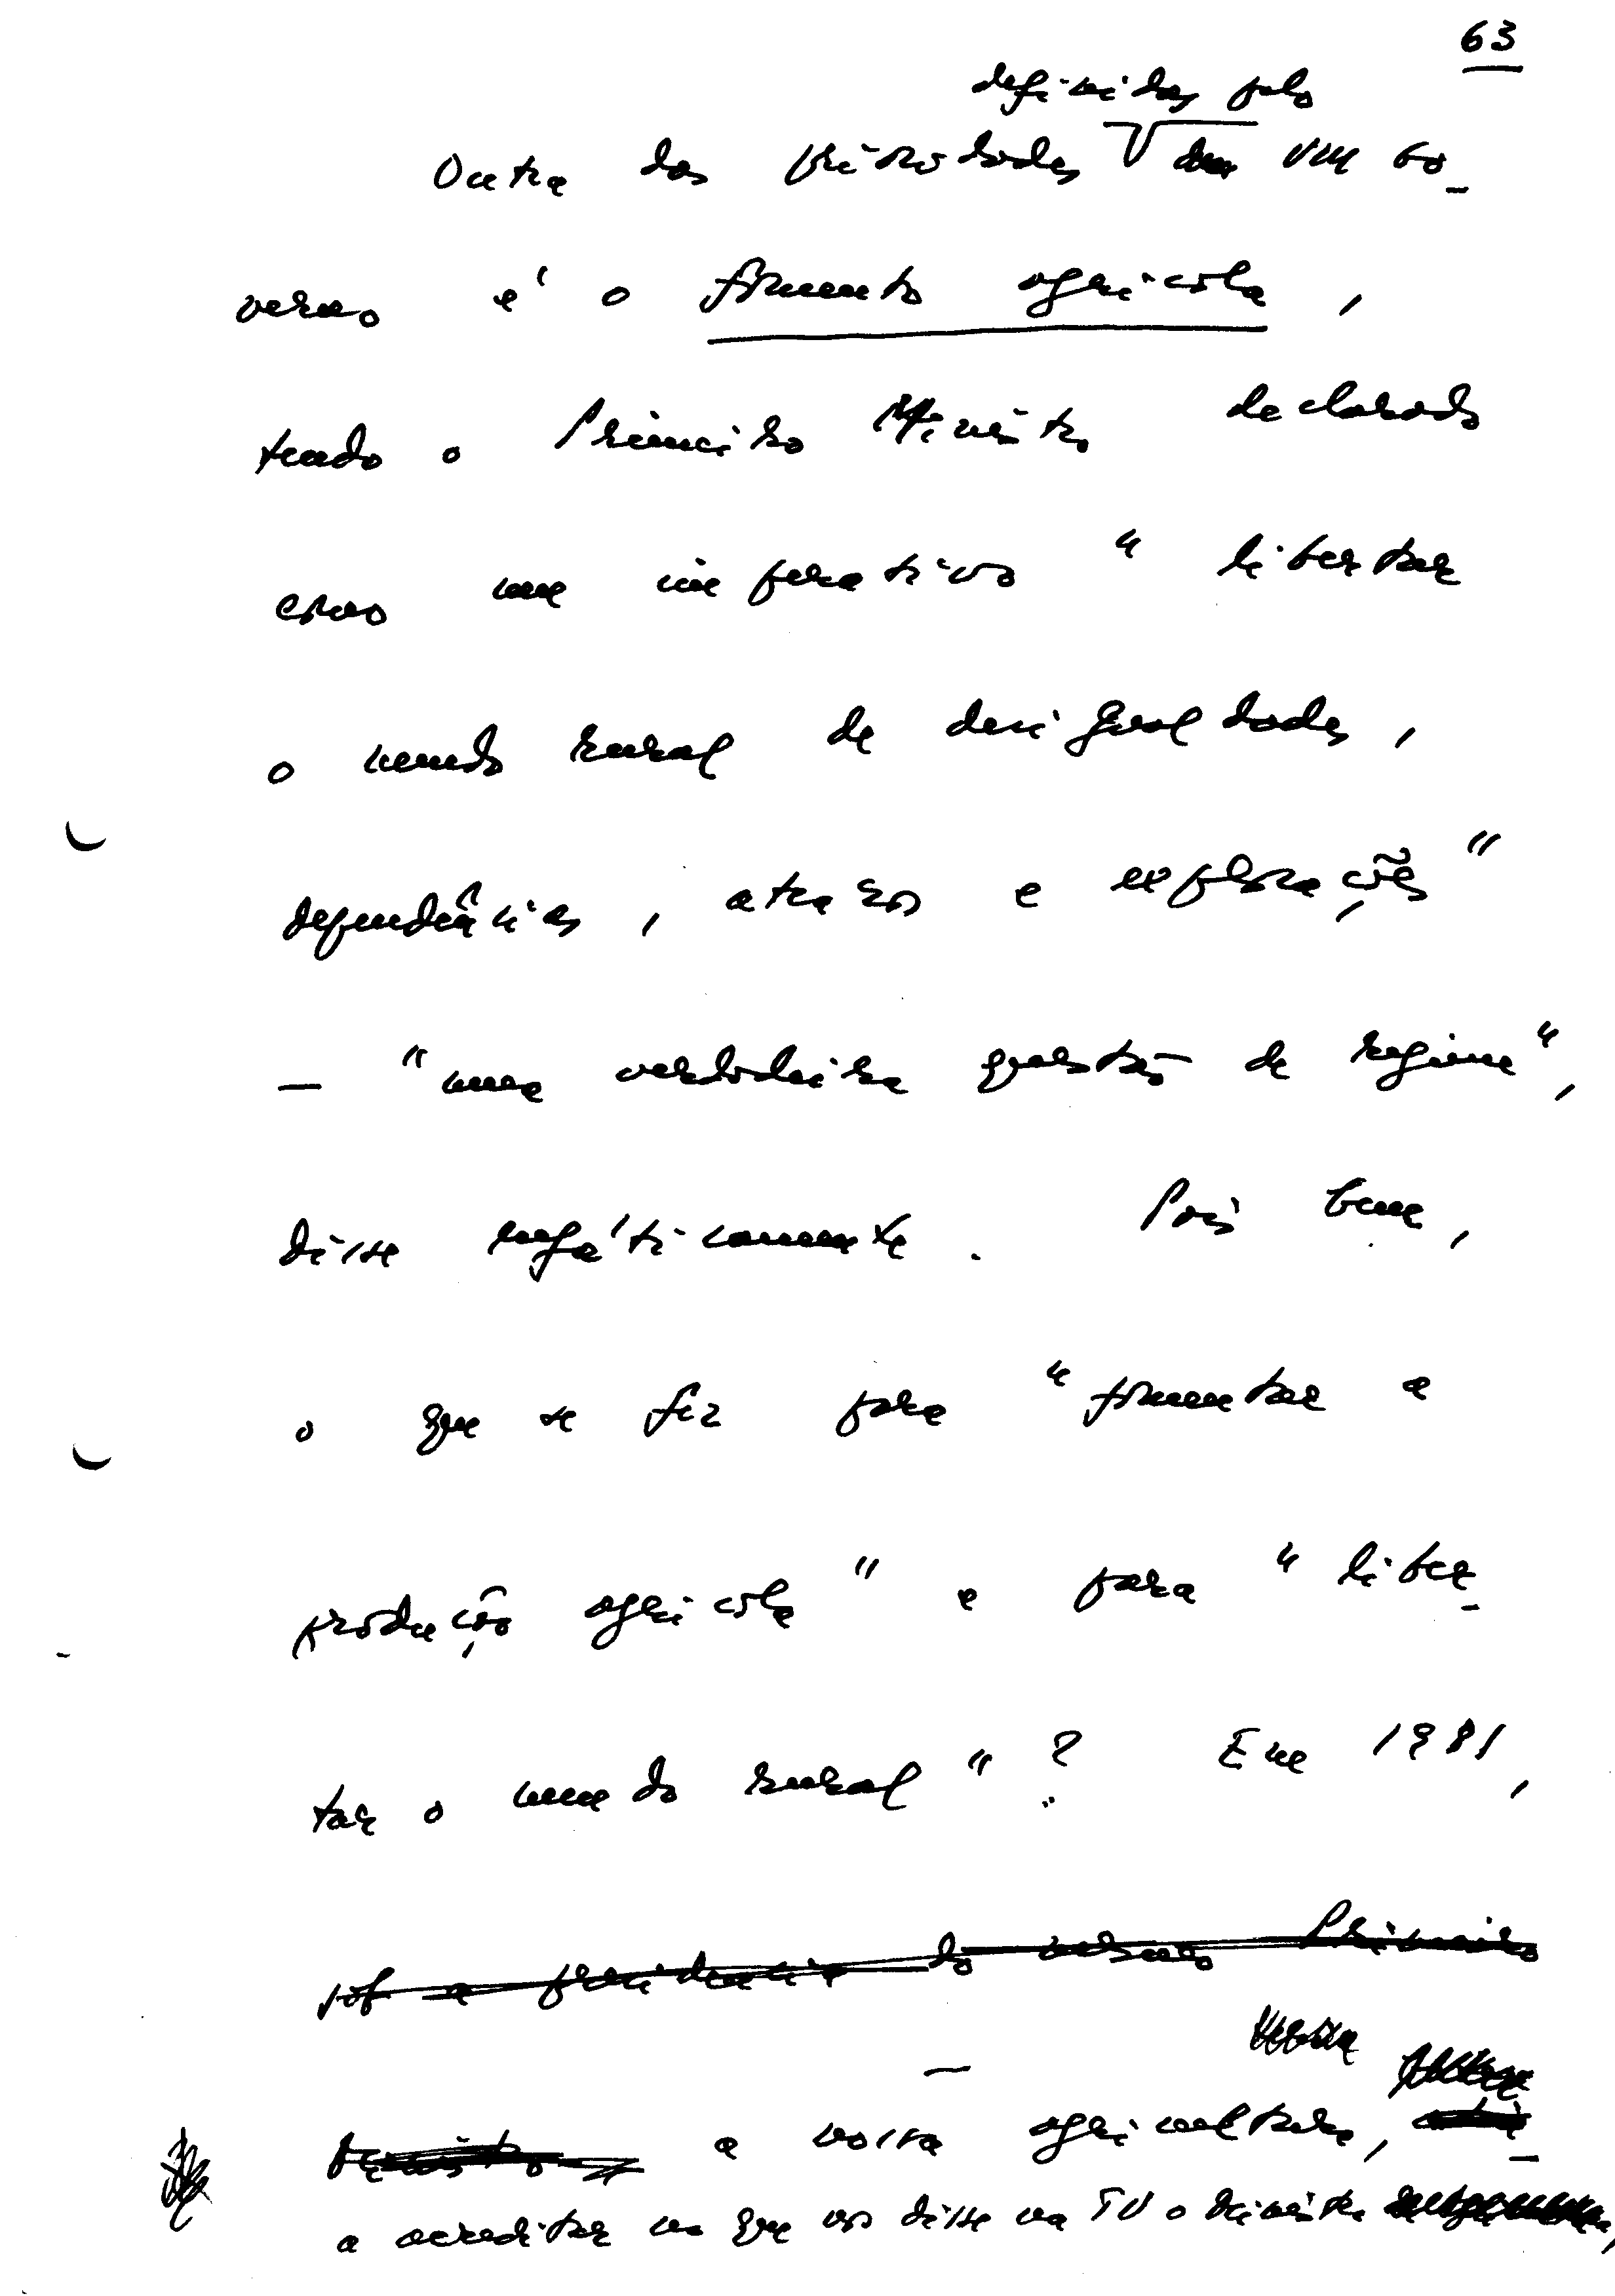 63
definidas pelo
Outra das prioridades VIII Go-
verno é o fomento agrícola,
tendo o Primeiro Ministro declarado
como um imperativo "libertar
o mundo rural de desigualdades,
dependências, atrasos e explorações"
— "uma verdadeira questão de regime",
disse enfàticamente. Pois bem,
o que se fez para "fomentar a
produção agrícola" e para "liber-
tar o mundo rural"? Em 1981,
sob a presidência do mesmo Primeiro
Ministro — a nossa agricultura,
a acreditar no que nos disse na TV o Ministro